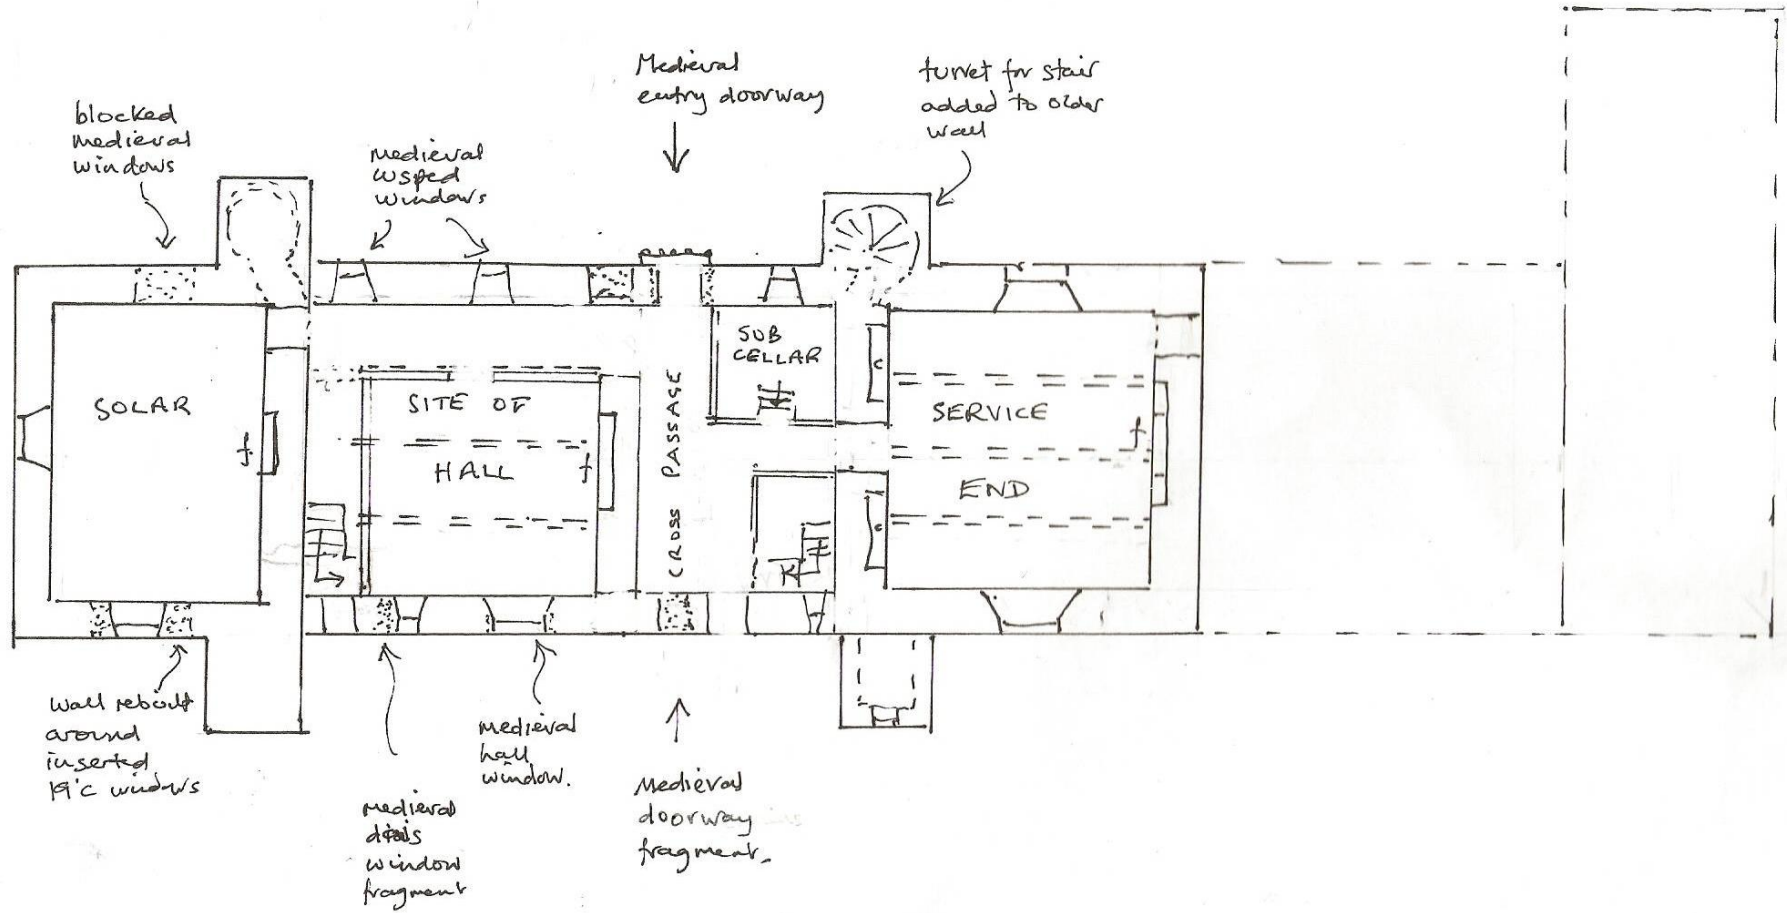 blocked
medieval
windows
medieval
cusped
windows
Medieval
entry doorway
turret for stair
added to older
wall
SOLAR
f
SITE OF
HALL
f
CROSS PASSAGE
SUB
CELLAR
C
C
SERVICE
END
f
wall rebuilt
around
inserted
19'c windows
medieval
dais
window
fragment
medieval
hall
window.
Medieval
doorway
fragment.